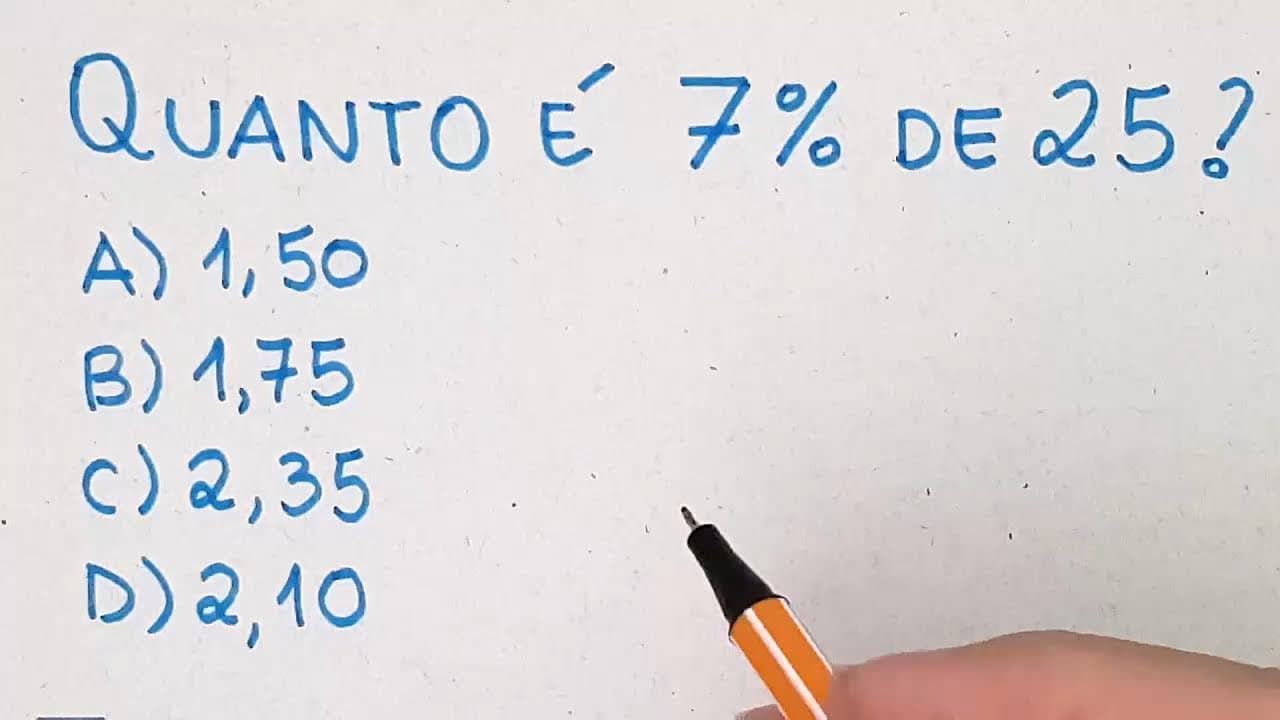 QUANTO É 7% DE 25?
A) 1,50
B) 1,75
C) 2,35
D) 2,10